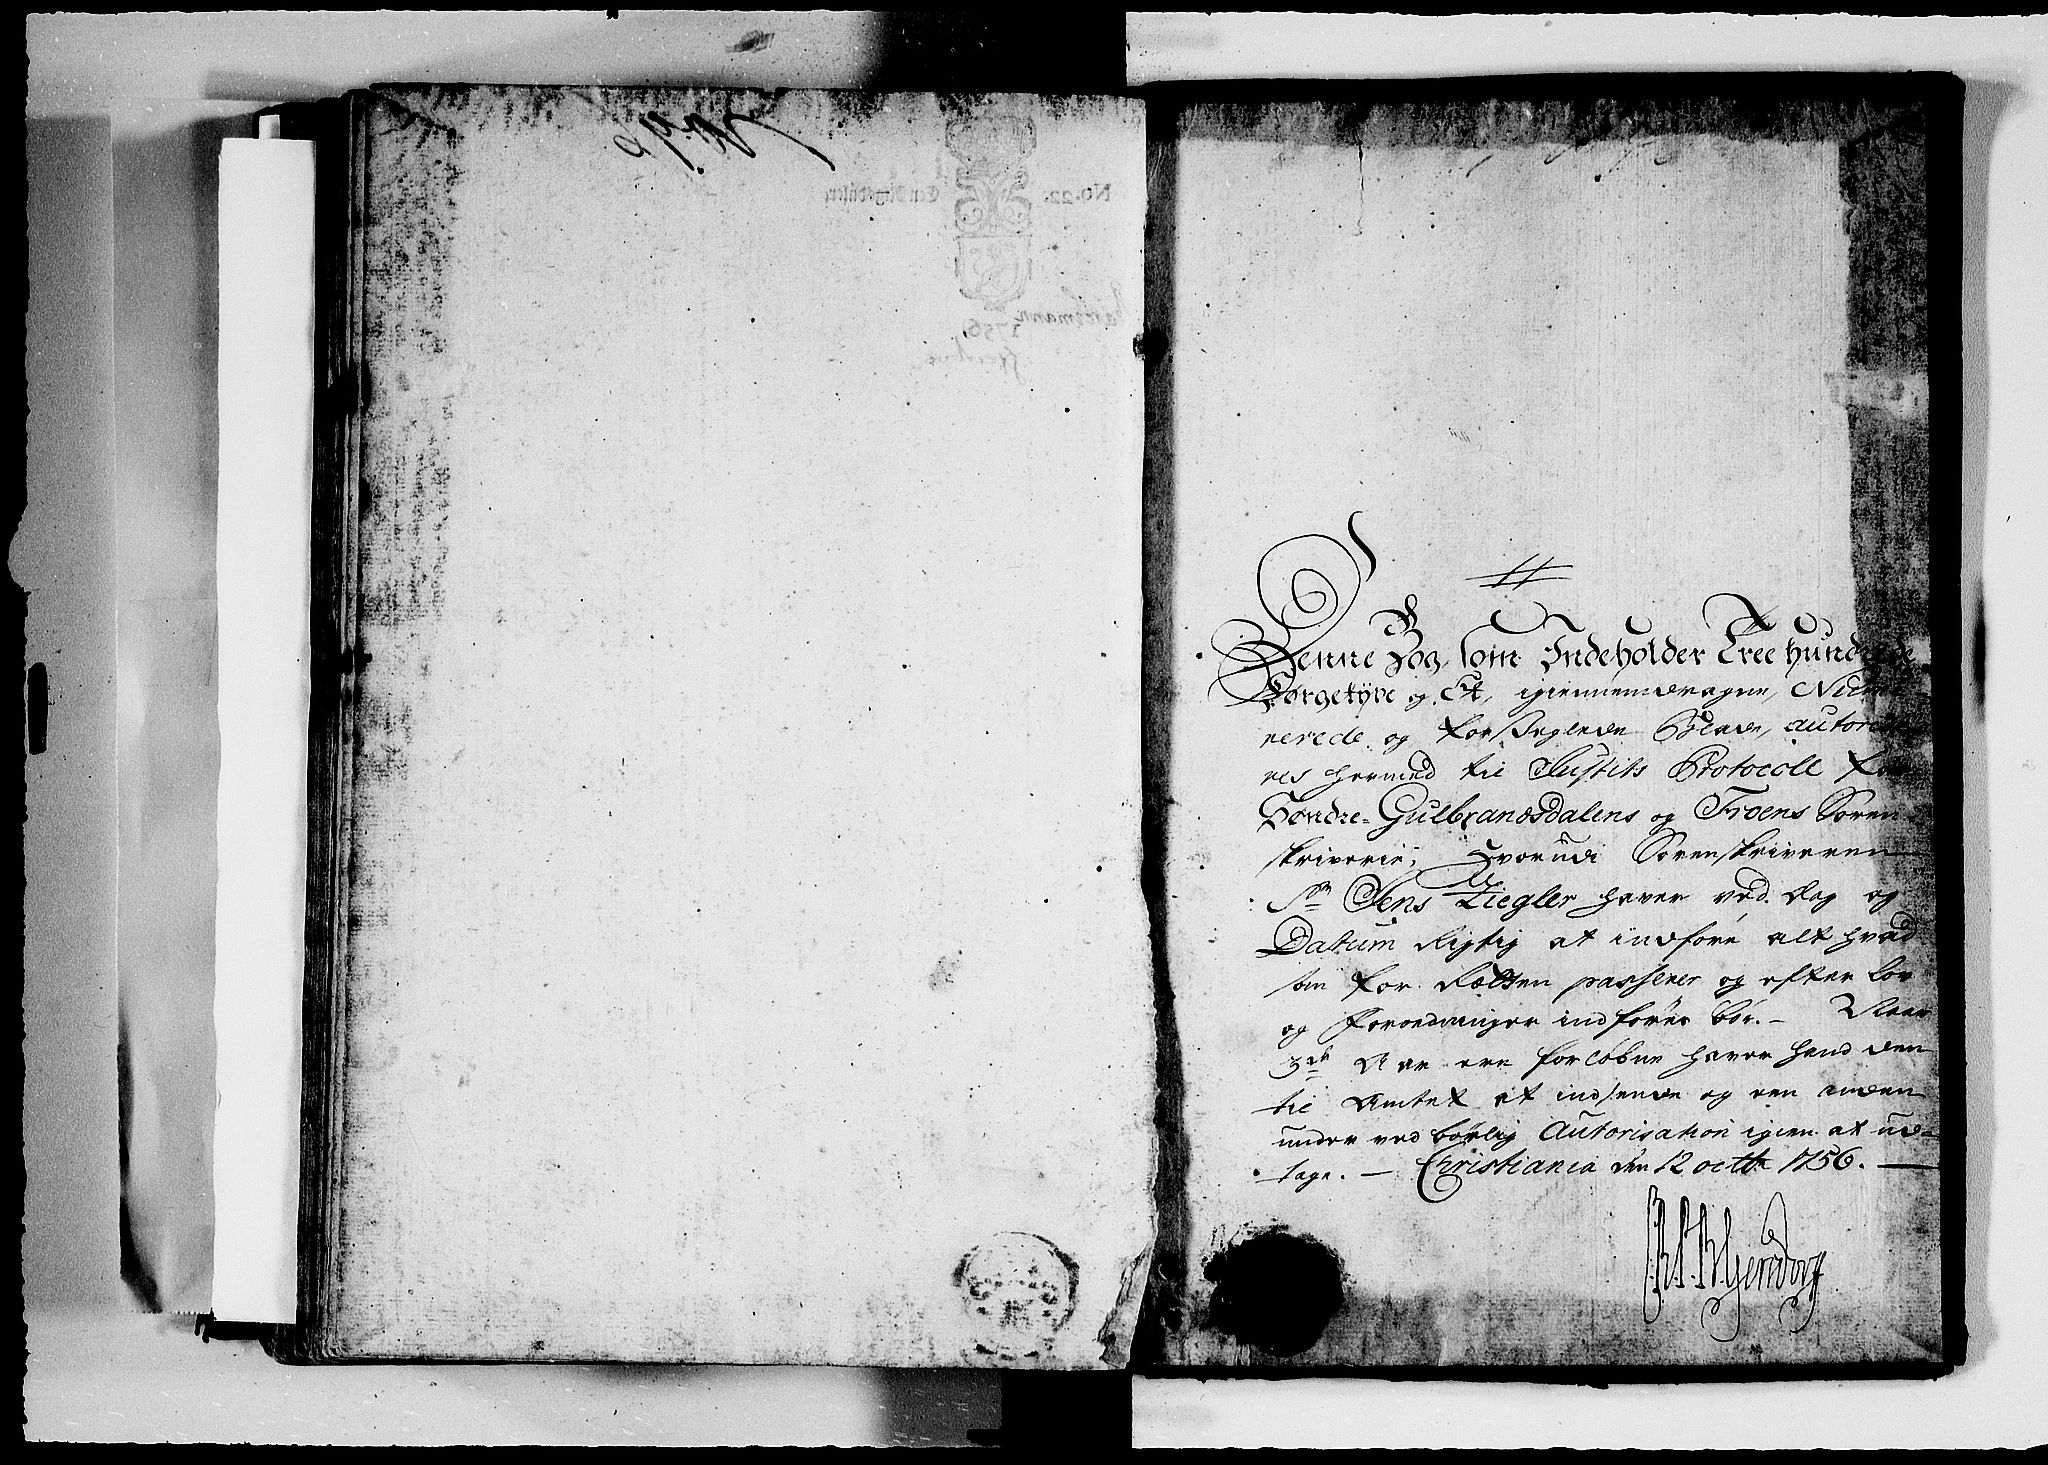 Denne Bog, som Indeholder Tree hundrede
Førgetÿve og Et, igiennemdragne, Num
rerede og forseglede Blade, autorise
res hermed til Justits Protocoll for
Søndre-Gulbrandsdalens og Froens Soren
skriverie; Hvorudi Sorenskriveren
Sr Jens Ziegler haver ved Dag og
Datum Rigtig at indføre alt hvad
som for Rætten passerer og efter Lov
og Forordninger indføres bør. – Naar
3de Aar ere forløbne haver hand den
til Amtet at indsende og een anden
under ved børlig Autorisation igien at ud-
tage. – Christiania den 12 octbr 1756. –
No. 22.
1756